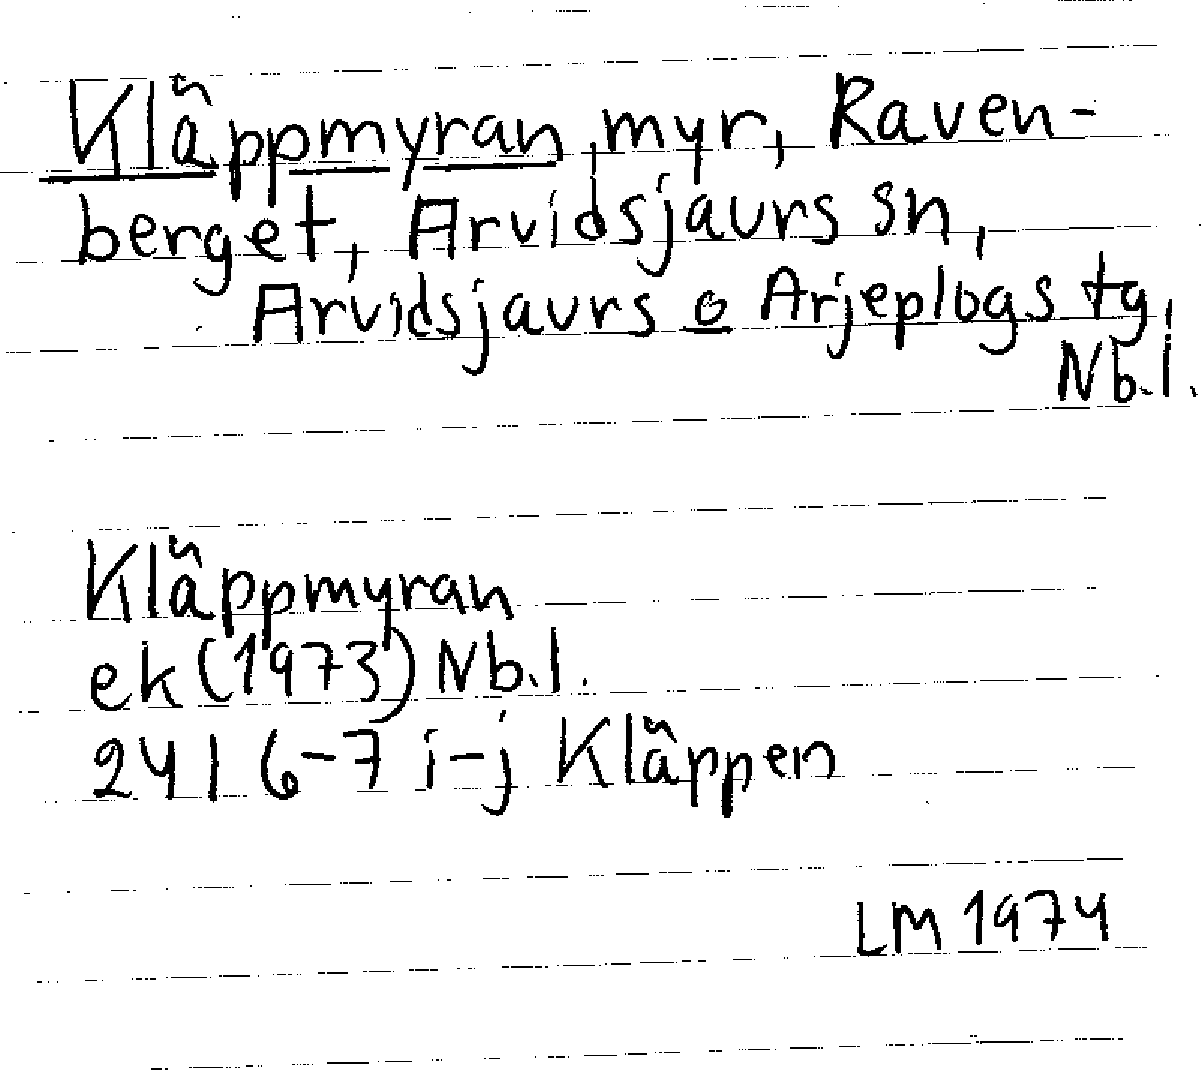 Kläppmyran, myr, Raven-
berget, Arvidsjaurs sn,
Arvidsjaurs o Arjeplogs tg,
Nb.l.
Kläppmyran
ek (1973) Nb.l.
241 6-7 i-j Kläppen
LM 1974